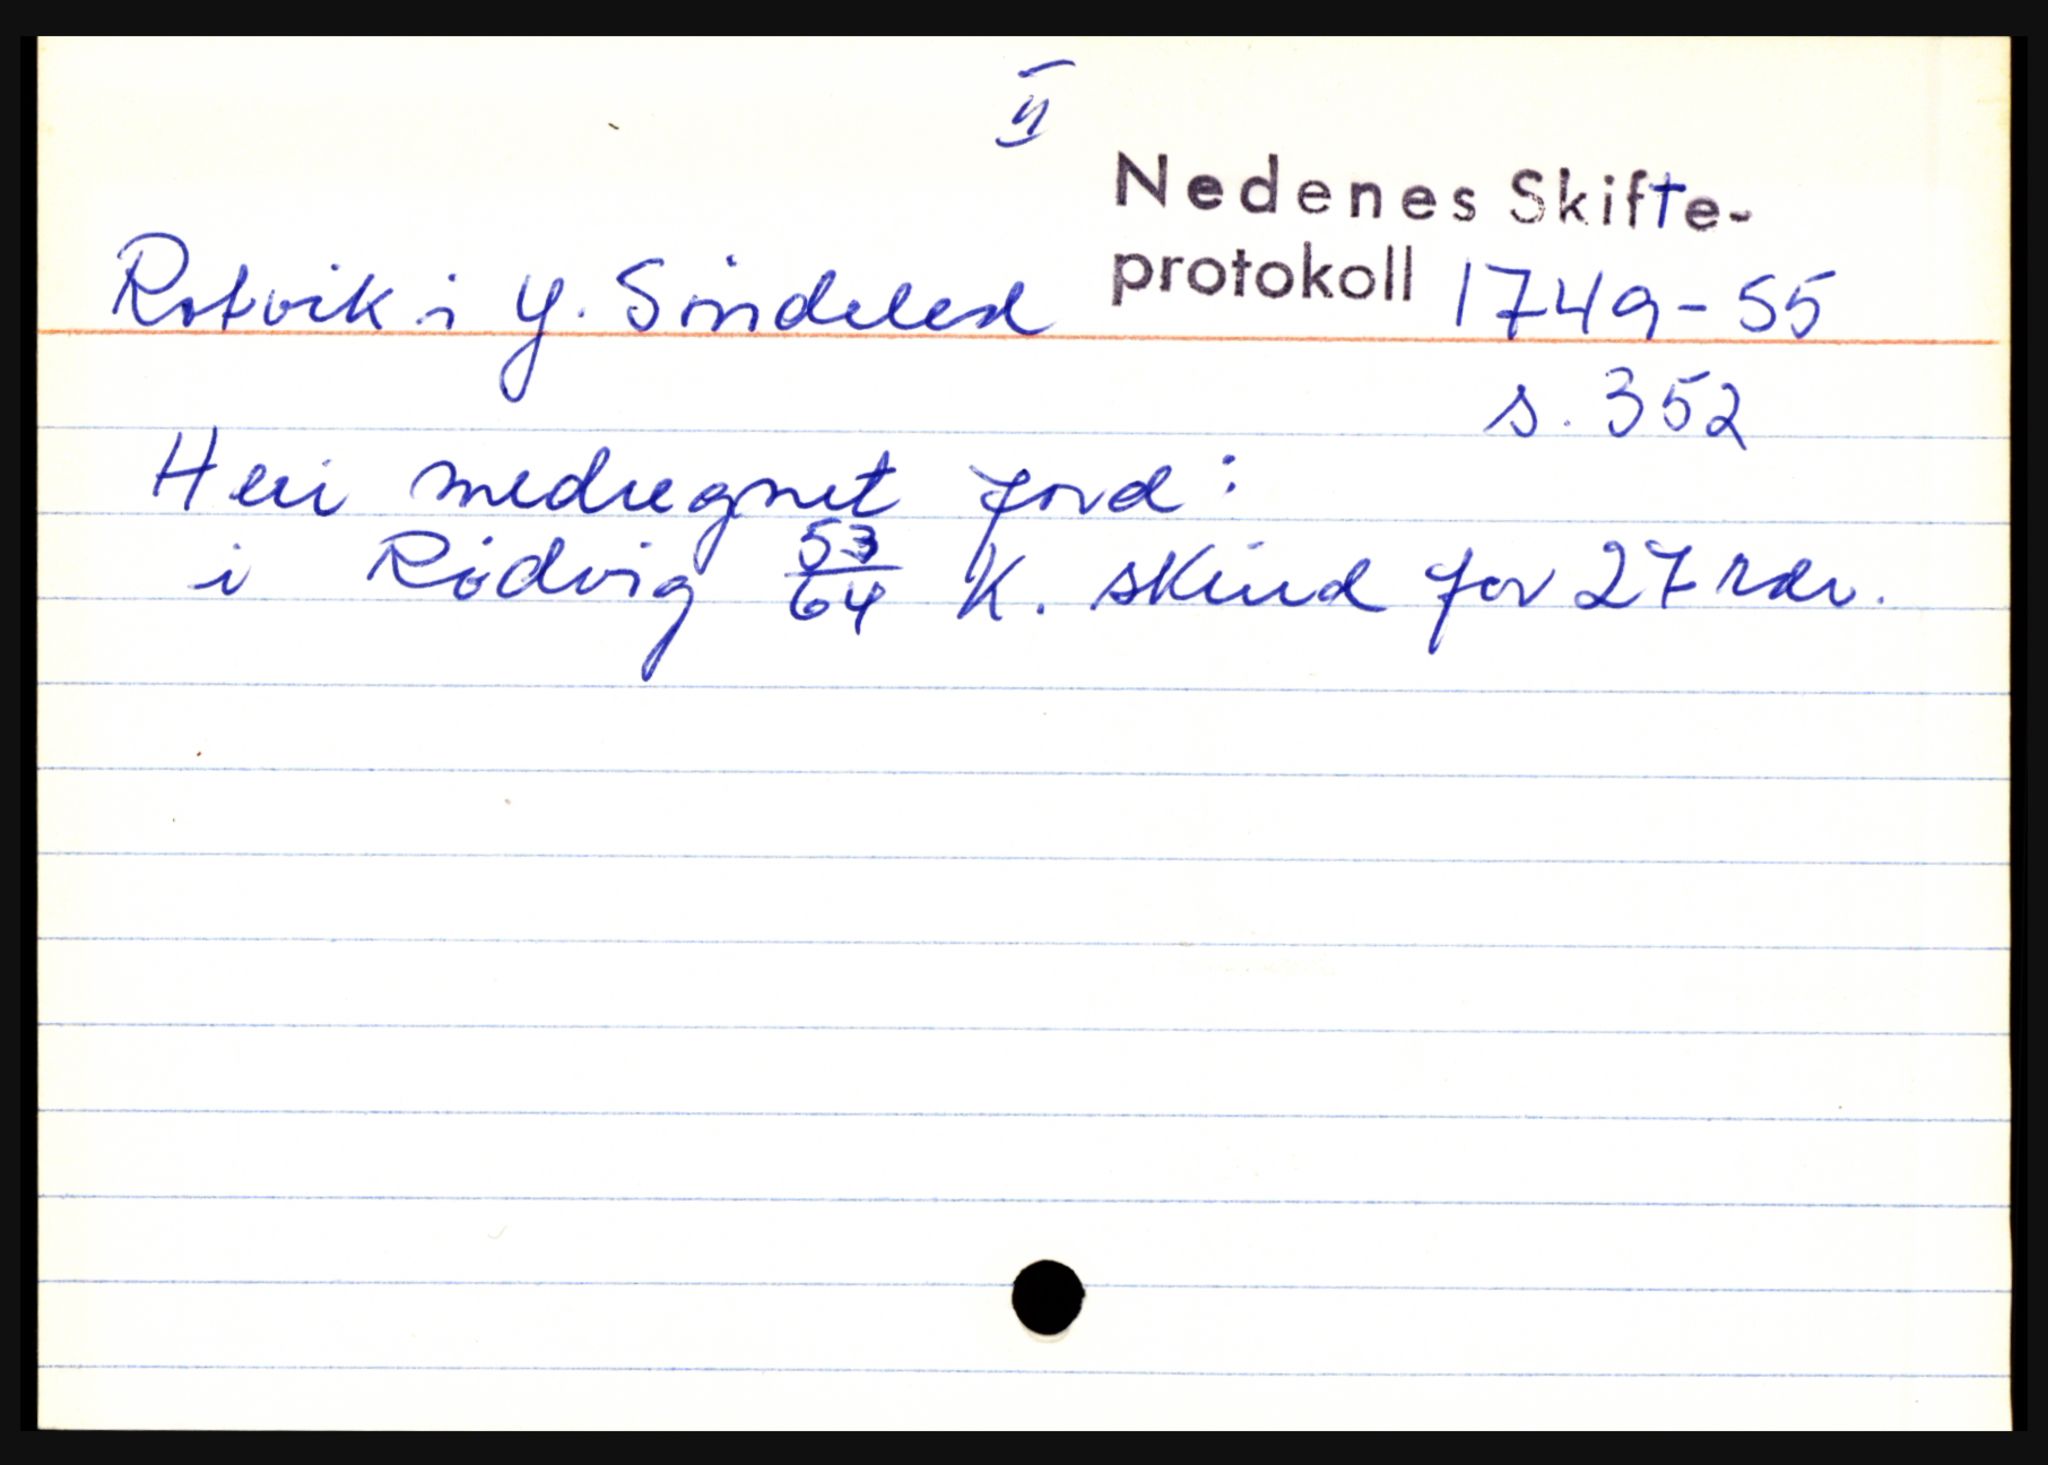 II
Nedenes Skifte-
protokoll 1749-55
Rotvik i Y. Søndeled
s. 352
Heri medregnet jord:
i Rødvig 53/64 K. skind for 27 rdr.